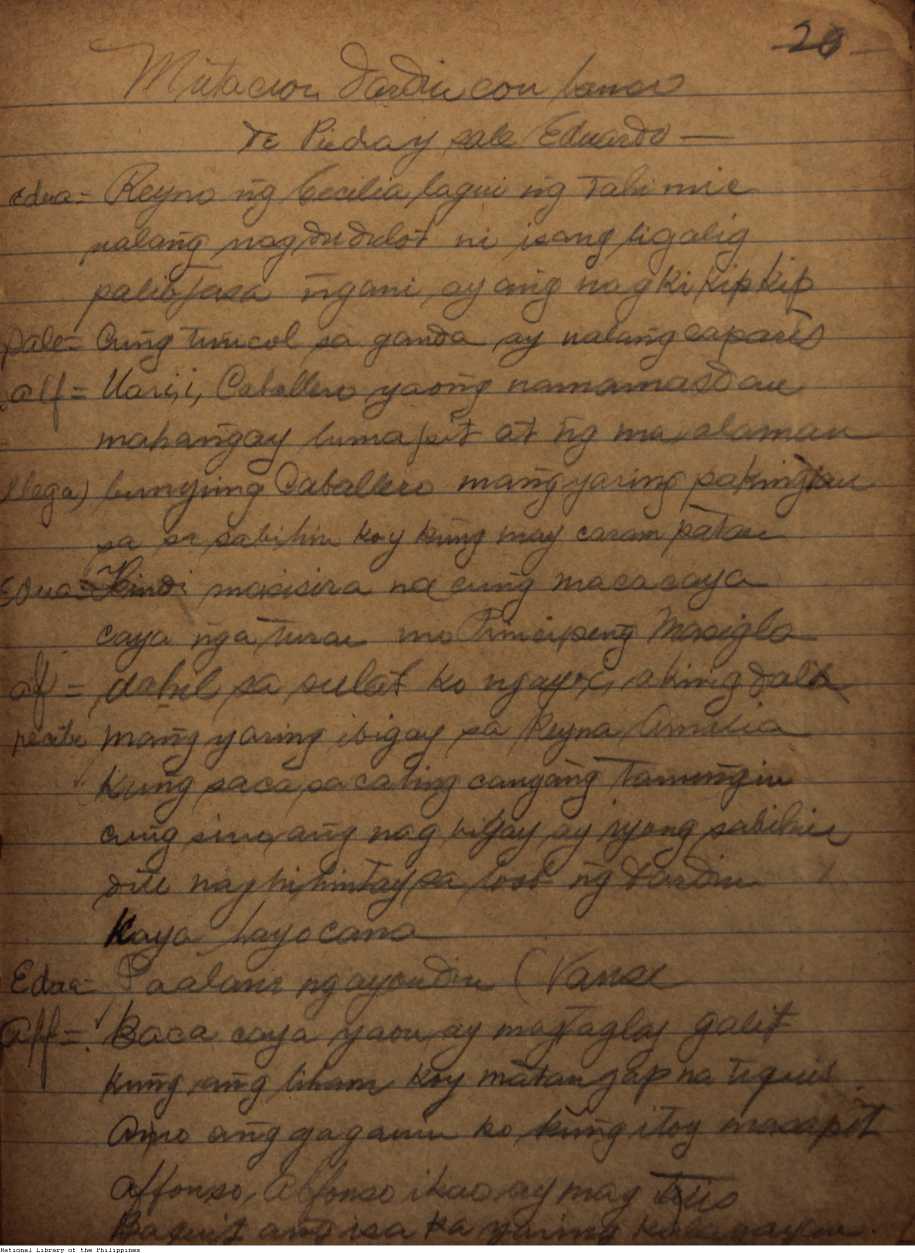 20 -
Mutacion Jardin con banco
de Piedra y sale Eduardo —
Edua = Reyno ng Cecilia lagui ng tahimic
nalang nagdudulot ni isang ligalig
ngani ay ang nagkikipkip
sale = Cung tuncol sa ganda ay nalang caparis
Alf = Uari, i, Caballero yaong namamasdan
mahangay lumapit at ng ma alaman
llega) bunying Caballero mangyaring pakingan
sa sasabihin koy kung may caram patan
Edua = Hindi macacaya
caya nga turan mo Principeng Masigla
alf = dahil sa sulat ko ngayon, aking dala
recibe mangyaring ibigay sa Reyna
kung saca sacaling cangang tanungin
cung sino ang nag bigay ay iyong sabihin
dili naghihintay sa loob ng Jardin
Kaya layo cana
Edua = Paalam ngayondin (Vanse
Alf = Baca caya yaon ay magtaglay galit
kung ang liham koy matangap na tiquis
Ano ang gagawin ko kung itoy masapit
Alfonso, Alfonso ikao ay may
Baquit ang isa ka yaring
National Library of the Philippines